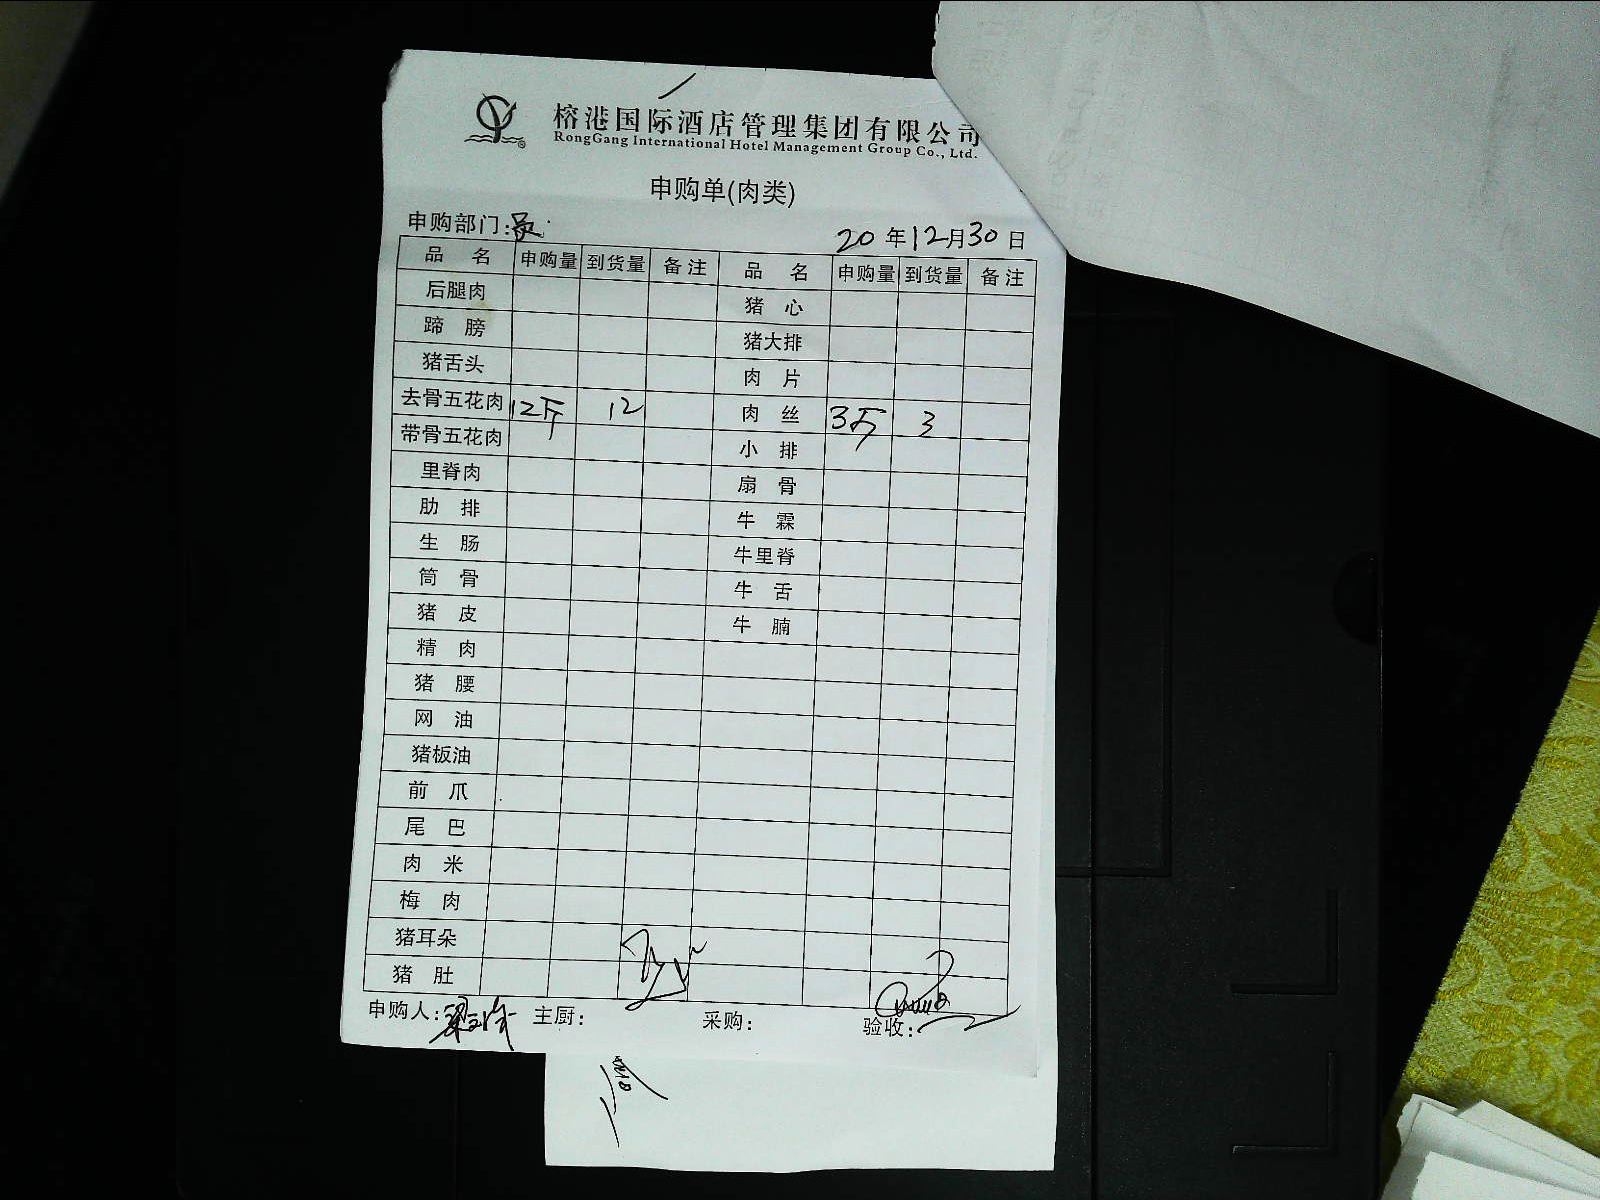 榕港国际酒店管理集团有限公司
RongGang International Hotel Management Group Co., Ltd.
申购单(肉类)
申购部门: 20年12月30日
品名 申购量 到货量 备注 品名 申购量 到货量 备注
后腿肉 猪心
蹄膀 猪大排
猪舌头 肉片
去骨五花肉 12斤 12 肉丝 3斤 3
带骨五花肉 小排
里脊肉 扇骨
肋排 牛霖
生肠 牛里脊
筒骨 牛舌
猪皮 牛腩
精肉
猪腰
网油
猪板油
前爪
尾巴
肉米
梅肉
猪耳朵
猪肚
申购人: 主厨: 采购: 验收: